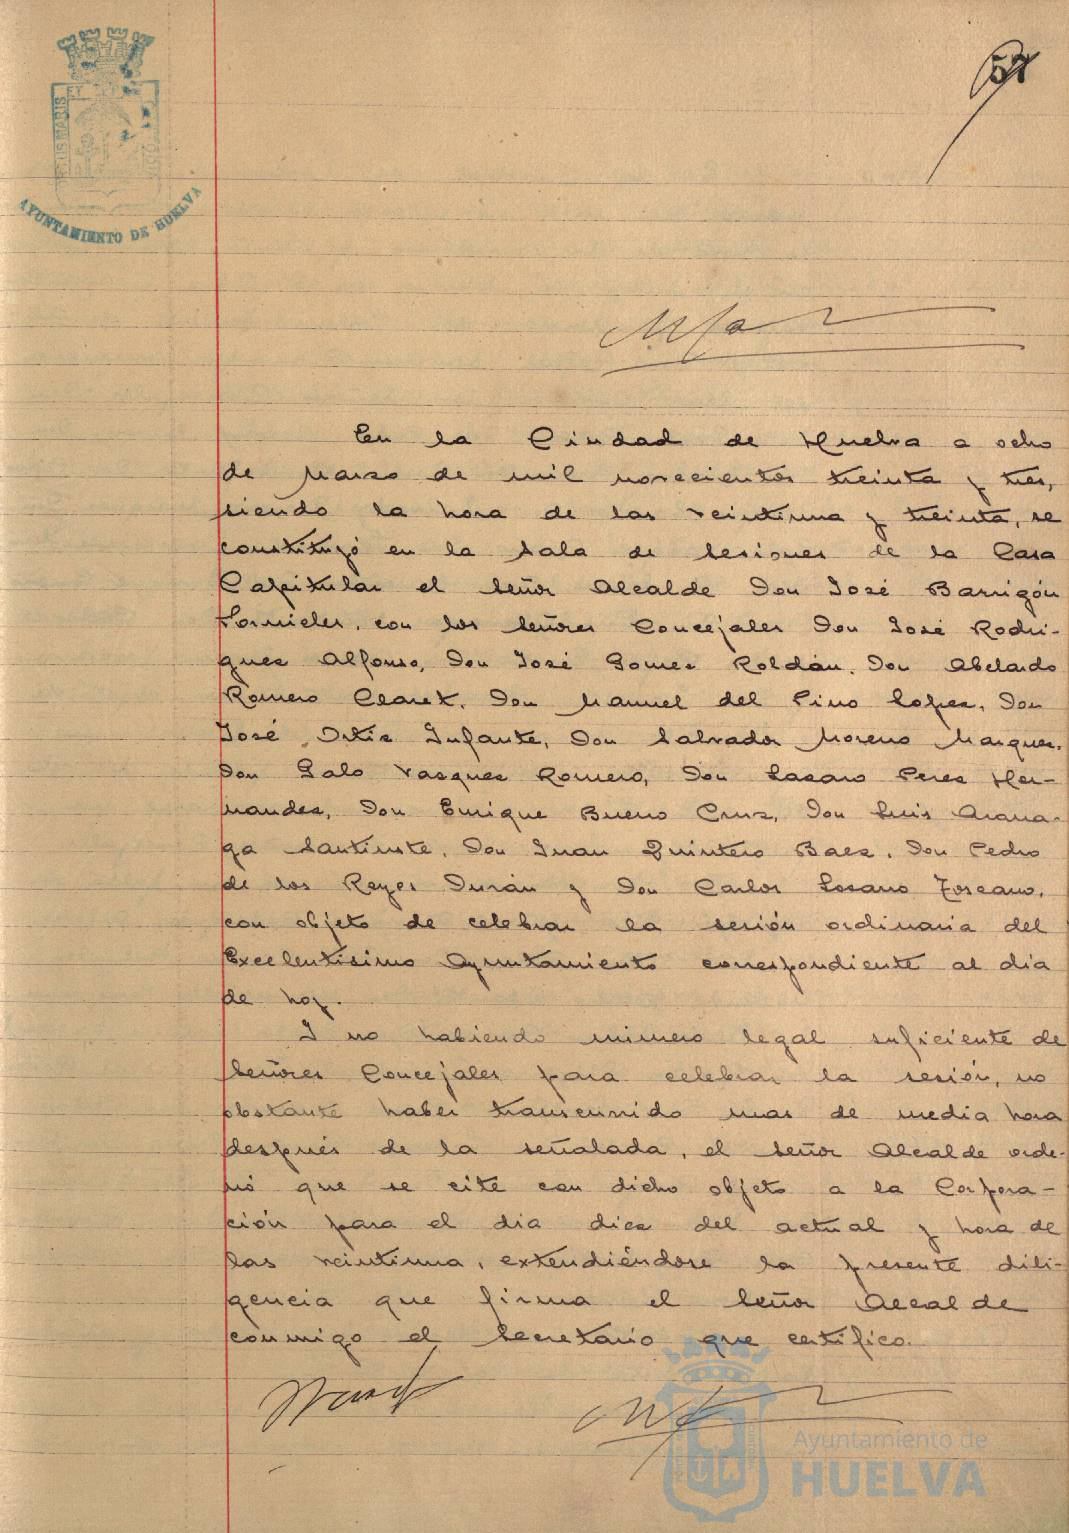 57
AYUNTAMIENTO DE HUELVA
En la Ciudad de Huelva a ocho
de Marzo de mil novecientos treinta y tres,
siendo la hora de las veintiuna y treinta, se
constituyó en la Sala de Sesiones de la Casa
Capitular el Señor Alcalde Don José Barrigón
Fornieles, con los Señores Concejales Don José Rodri-
guez Alfonso, Don José Gomez Roldán, Don Abelardo
Romero Claret, Don Manuel del Pino Lopez, Don
José Ortiz Infante, Don Salvador Moreno Marquez,
Don Galo Vazquez Romero, Don Lazaro Perez Her-
nandez, Don Enrique Bueno Cruz, Don Luis Arana-
ga Santiuste, Don Juan Quintero Baez, Don Pedro
de los Reyes Durán y Don Carlos Lozano Toscano,
con objeto de celebrar la sesión ordinaria del
Excelentisimo Ayuntamiento correspondiente al dia
de hoy.
Y no habiendo número legal suficiente de
Señores Concejales para celebrar la sesión, no
obstante haber transcurrido mas de media hora
después de la señalada, el Señor Alcalde orde-
nó que se cite con dicho objeto a la Corpora-
ción para el dia diez del actual y hora de
las veintiuna, extendiéndose la presente dili-
gencia que firma el Señor Alcalde
conmigo el Secretario que certifico.
Ayuntamiento de
HUELVA